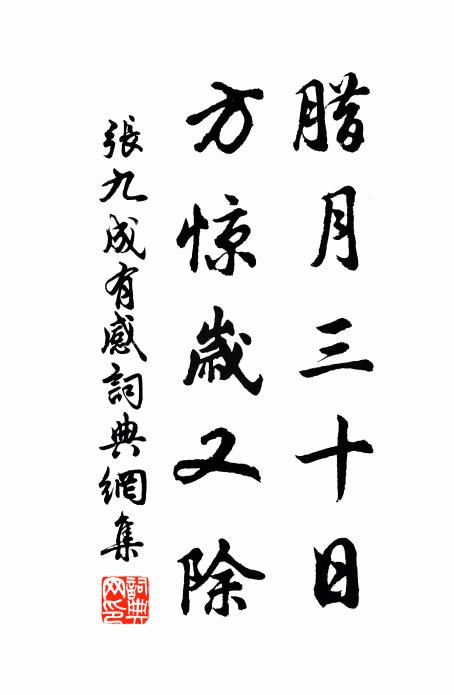 腊月三十日
方惊歲又除
張九成有感詞典網集
詞典網印